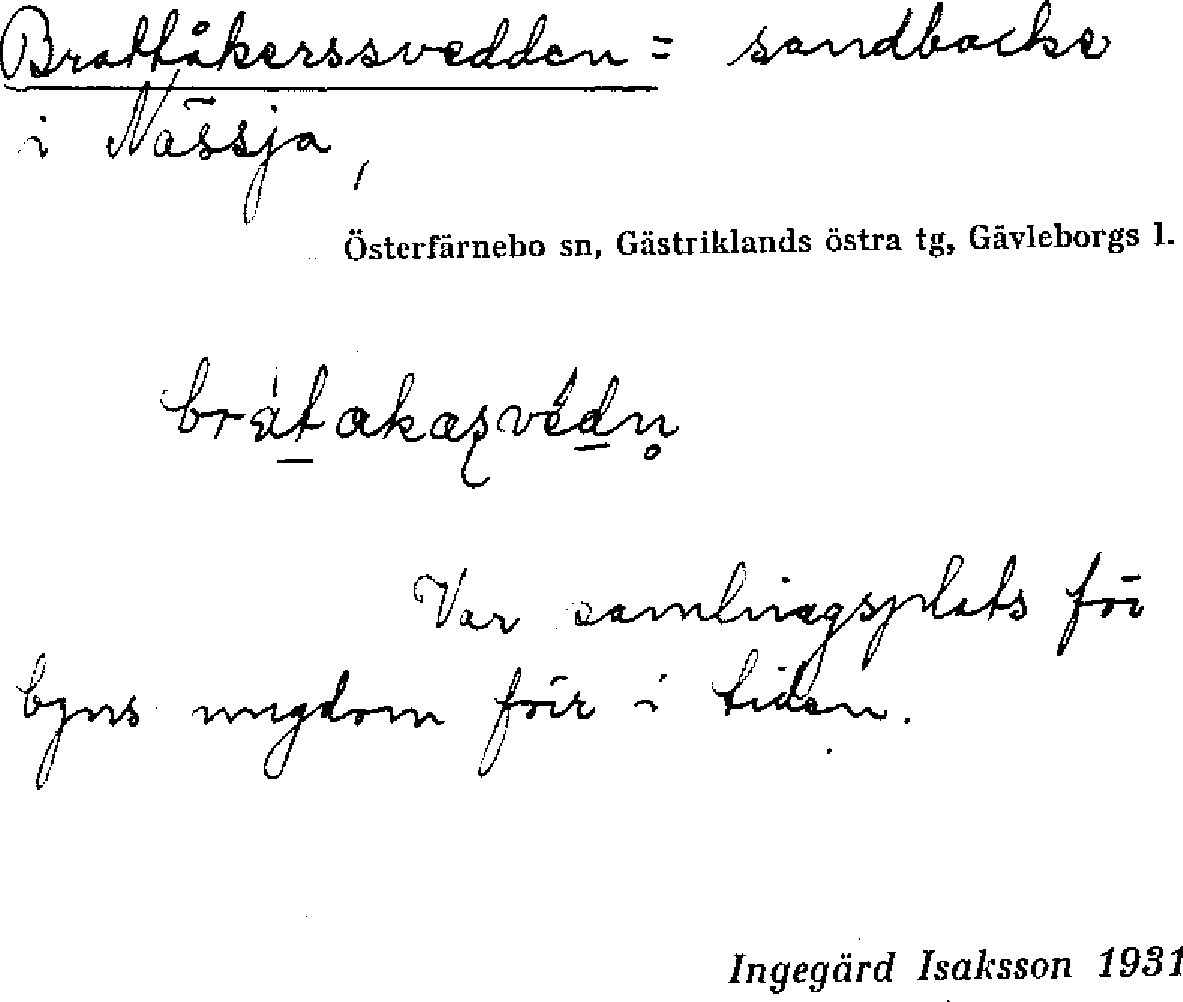 Brattåkerssvedden = sandbacke
i Nässja,
Österfärnebo sn, Gästriklands östra tg, Gävleborgs l.
Var samlingsplats för
byns ungdom förr i tiden.
Ingegärd Isaksson 1931